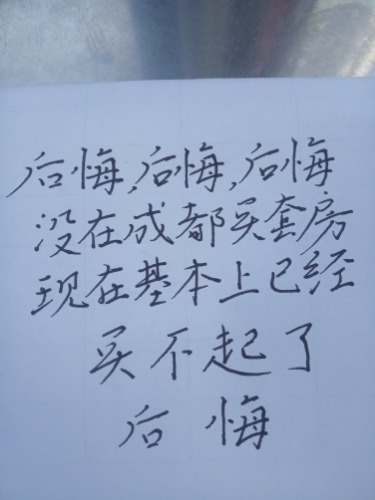 后悔,后悔,后悔
没在成都买套房
现在基本上已经
买不起了
后悔